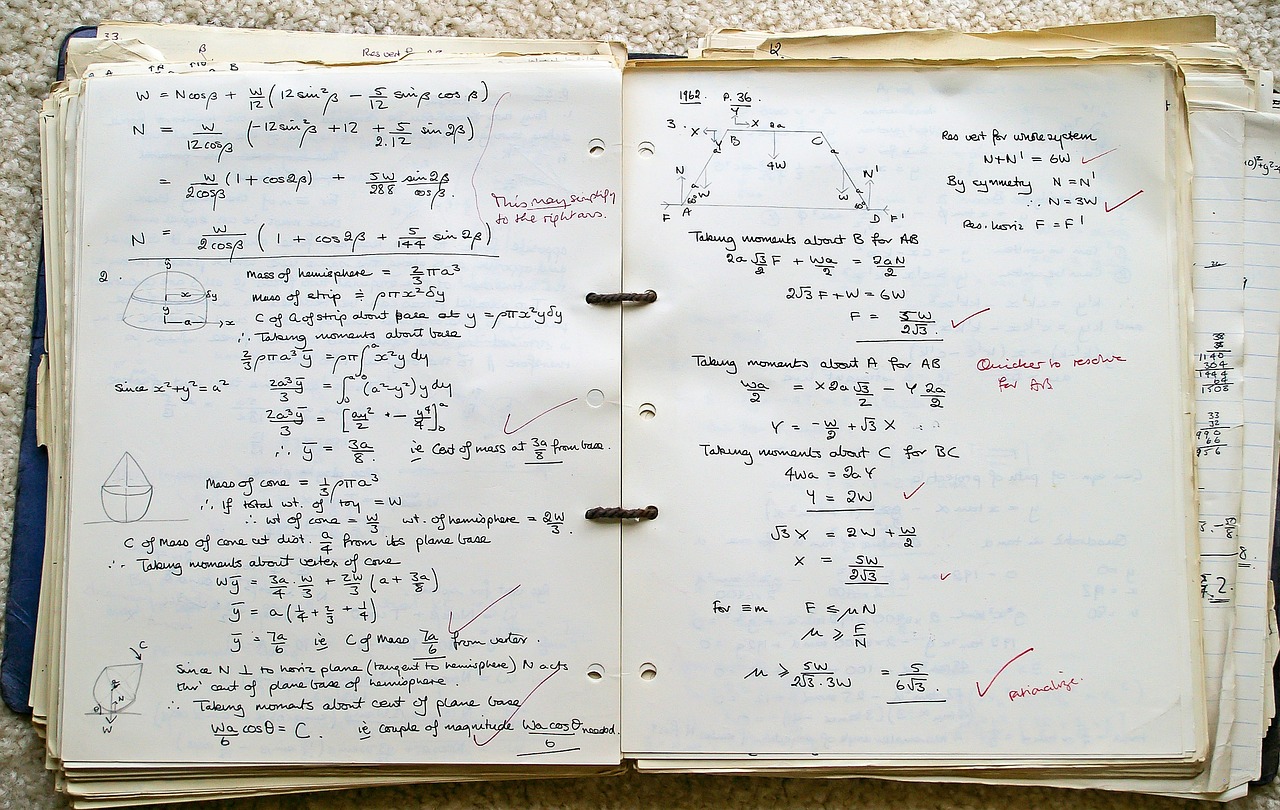 33.
β
Res vert
W = Ncosβ + W/12 (12sin²β − 5/12 sinβ cosβ)
N = W/12cosβ (−12sin²β + 12 + 5/2.12 sin2β)
= W/2cosβ (1 + cos2β) + 5W/288 sin2β/cosβ.
This may simplify
to the right ans.
N = W/2cosβ (1 + cos2β + 5/144 sin2β)
2.
y
x δy
y
a → x
Mass of hemisphere = 2/3 πa³
Mass of strip ≑ ρπx²δy
C of G of strip about base at y = ρπx²yδy
∴ Taking moments about base
2/3 ρπa³ȳ = ρπ∫₀ᵃ x²y dy
Since x²+y² = a² 2a³ȳ/3 = ∫₀ᵃ (a²−y²) y dy
2a³ȳ/3 = [ay²/2 − y⁴/4]₀ᵃ
∴ ȳ = 3a/8 ie Cent of mass at 3a/8 from base.
Mass of cone = 1/3 ρπa³
∴ If total wt. of toy = W
∴ wt of cone = W/3 wt. of hemisphere = 2W/3.
C of Mass of cone at dist. a/4 from its plane base
∴ Taking moments about vertex of cone
Wȳ = 3a/4 · W/3 + 2W/3 (a + 3a/8)
ȳ = a(1/4 + 2/3 + 1/4)
ȳ = 7a/6 ie C of Mass 7a/6 from vertex.
C
N
θ
W
Since N ⊥ to horiz plane (tangent to hemisphere) N acts
thro' cent of plane base of hemisphere.
∴ Taking moments about cent of plane base
Wa/6 cosθ = C. ie couple of magnitude Wa cosθ/6 needed.
12.
1962. P. 36.
3. X Y X 2a
B C
Y a a
4W
N a W W a N'
60° 60°
F A D F'
Res vert for whole system
N+N' = 6W
By symmetry N = N'
∴ N = 3W
Res. horiz F = F'
Taking moments about B for AB
2a √3/2 F + Wa/2 = 2aN/2
2√3 F + W = 6W
F = 5W/2√3.
Taking moments about A for AB
Quicker to resolve
for AB
Wa/2 = X 2a √3/2 − Y 2a/2
Y = −W/2 + √3 X
Taking moments about C for BC
4Wa = 2aY
Y = 2W
√3 X = 2W + W/2
X = 5W/2√3
For ≡m F ≤ μN
μ ≥ F/N
μ ≥ 5W/2√3.3W = 5/6√3.
rationalize.
38
38
1140
304
1444
64
1508
33
32
990
66
956